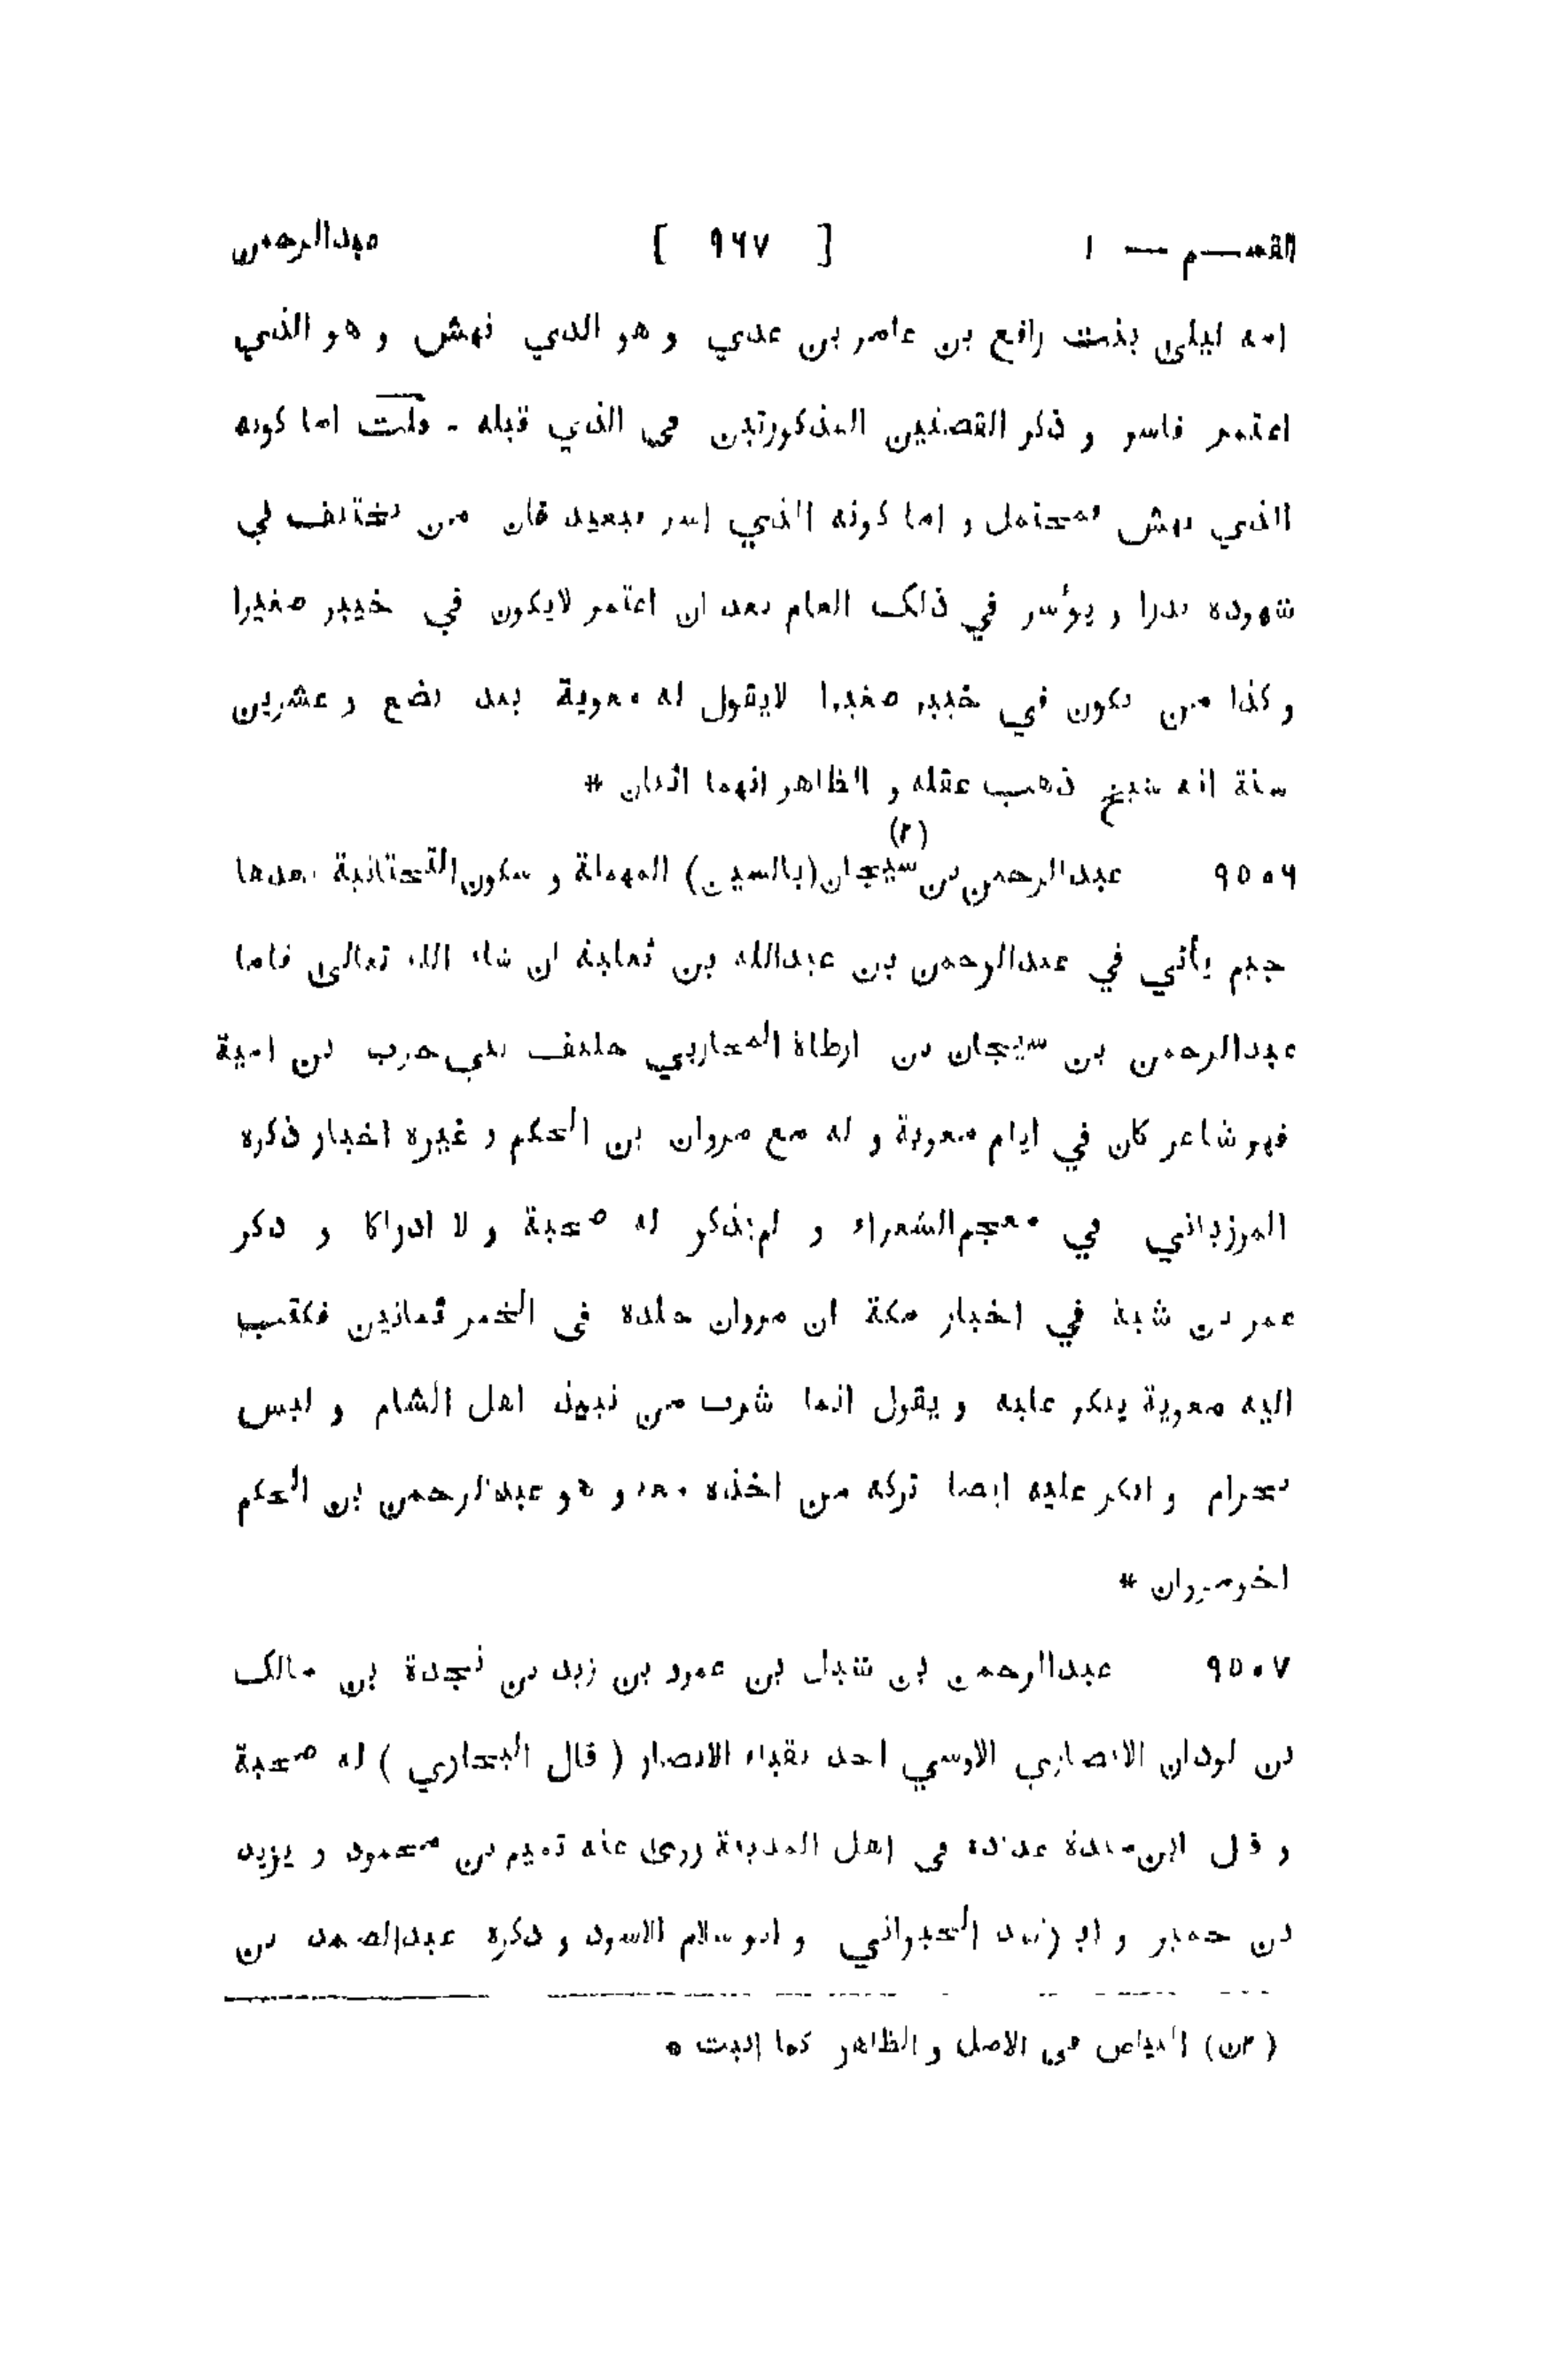 القسم — ١ [ ٩٦٧ ] عبدالرحمن
امه ليلى بنت رافع بن عامر بن عدي و هو الذي نهش و هو الذي
اعتمر فاسر و ذكر القصتين المذكورتين في الذي قبله - قلت اما كونه
الذي نهش فمحتمل و اما كونه الذي اسر فبعيد فان من يختلف في
شهوده بدرا و يؤسر في ذلك العام بعد ان اعتمر لايكون في خيبر صغيرا
و كذا من يكون في خيبر صغيرا لايقول له معوية بعد بضع و عشرين
سنة انه شيخ ذهب عقله و الظاهر انهما اثنان *
٩٥٠٦ عبدالرحمن بن سيجان (٢) (بالسين) المهملة و سكون التحتانية بعدها
جيم يأتي في عبدالرحمن بن عبدالله بن ثعلبة ان شاء الله تعالى فاما
عبدالرحمن بن سيجان بن ارطاة المحاربي حليف بني حرب بن امية
فهو شاعر كان في ايام معوية و له مع مروان بن الحكم و غيره اخبار ذكره
المرزباني في معجم الشعراء و لم يذكر له صحبة و لا ادراكا و ذكر
عمر بن شبة في اخبار مكة ان مروان جلده في الخمر ثمانين فكتب
اليه معوية ينكر عليه و يقول انما شرب من نبيذ اهل الشام و ليس
بحرام و انكر عليه ايضا تركه من اخذه معه و هو عبدالرحمن بن الحكم
اخو مروان *
٩٥٠٧ عبدالرحمن بن شبل بن عمرو بن زيد بن نجدة بن مالك
بن لوذان الانصاري الاوسي احد نقباء الانصار ( قال البخاري ) له صحبة
و قال ابن مندة عداده في اهل المدينة روى عنه تميم بن محمود و يزيد
بن حمير و ابو راشد الحبراني و ابو سلام الاسود و ذكره عبدالصمد بن
( ٢ن ) البياض في الاصل و الظاهر كما اثبت *